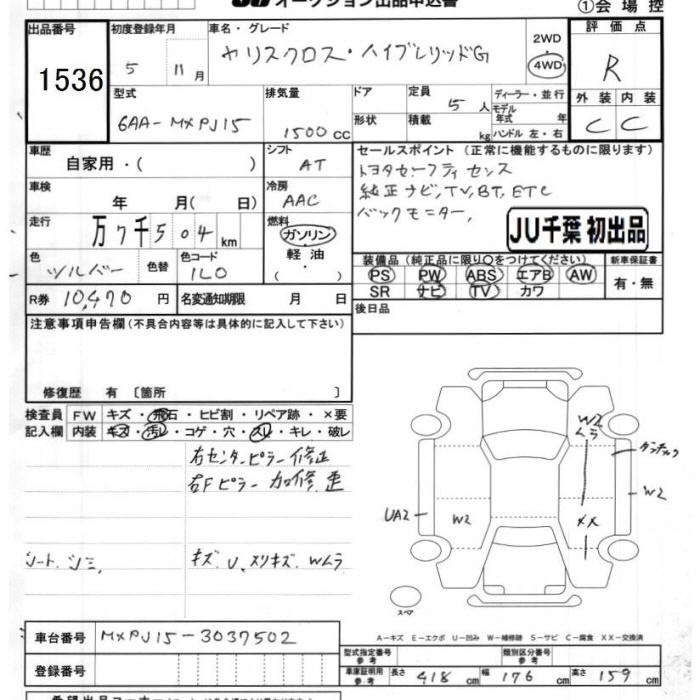 JU オークション出品申込書
①会場控
出品番号 初度登録年月 車名・グレード 評価点
1536 5 11月 ヤリスクロス・ハイブリッドG 2WD 4WD R
型式 排気量 ドア 定員 5人 ディーラー・並行 外装 内装
6AA-MXPJ15 1500cc 形状 積載 kg モデル年式 年 ハンドル 左・右 C C
車歴 シフト セールスポイント (正常に機能するものに限ります)
自家用・( ) AT トヨタセーフティセンス
車検 冷房 純正ナビ,TV,BT,ETC
年 月( 日) AAC バックモニター,
走行 燃料 JU千葉 初出品
万7千504km ガソリン
色 色コード 軽油・ 装備品 (純正品に限り○をつけてください) 新車保証書
シルバー 色替 1L0 ( ) PS PW ABS エアB AW 有・無
R券 10,470円 名変通知期限 月 日 SR ナビ TV カワ
注意事項申告欄(不具合内容等は具体的に記入して下さい) 後日品
修復歴 有 〔箇所 〕
検査員 FW キズ・飛石・ヒビ割・リペア跡・×要
記入欄 内装 キズ・汚レ・コゲ・穴・スレ・キレ・破レ
右センターピラー修正
右Fピラー加修歪
W2
ムラ
W2
UA2
W2
XX
シート シミ,
キズ、U、スリキズ、Wムラ
スペア
A－キズ E－エクボ U－凹み W－補修跡 S－サビ C－腐食 XX－交換済
車台番号 MXPJ15-3037502
登録番号
型式指定番号 参考 類別区分番号 参考
車庫証明用 参考 長さ 418cm 幅 176cm 高さ 159cm